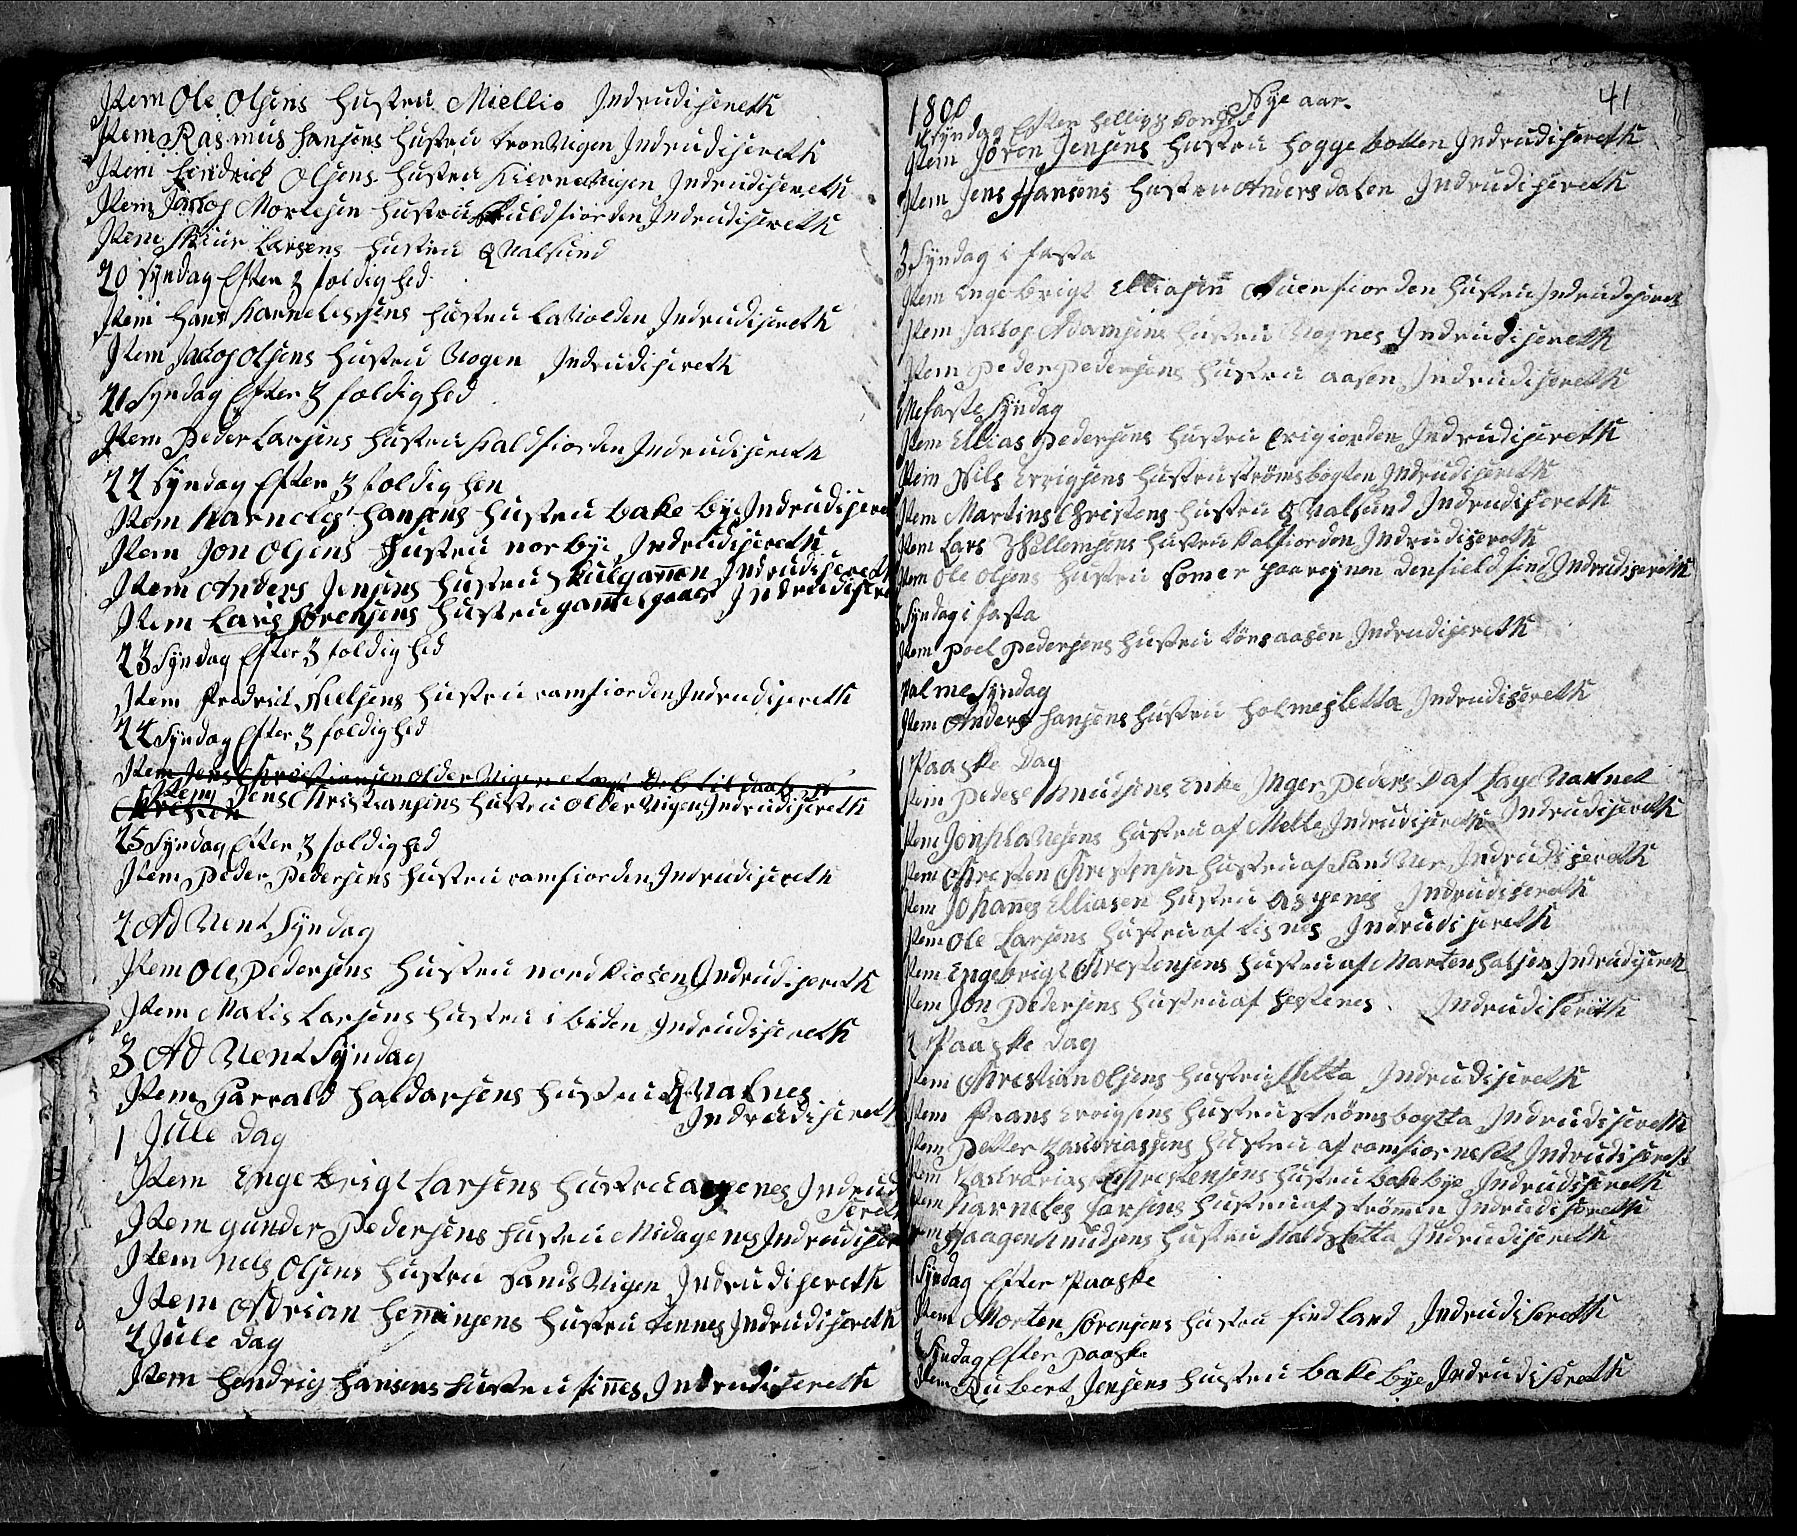 Item Ole Olsens Hustru Miellio Indrudisereth
Item Rasmus Hansens Hustru tronVigen Indrudisereth
Item Hendrick Olsens Hustru KierneVigen Indrudisereth
Item Jacob Mortesen Hustru Kuldfiorden Indrudisereth
Item Larsens Hustru QValsund
20 Syndag Efter 3 foldighed
Item Hans Karnelessens Hustru LaVolden Indrudisereth
Item Jacob Olsens Hustru Vogen Indrudisereth
21 Syndag Efter 3 foldighed
Item Peder Larsens Hustru Kaldfiorden Indrudisereth
22 Syndag Efter 3 foldighen
Item Karneles Hansens Hustru bake bye Indrudisere
Item Jon Olsens Hustru norbye Indrudisereth
Item Anders Jensens Hustru Skulgamen Indrudisereth
Item Lars Sørensens Hustru gammelgaar Indrudisere
23 Syndag Efter 3 foldighed
Item Fredrick Nielsens Hustru ramfiorden Indrudisereth
24 Syndag Efter 3 foldighed
Item Jens Christiansen olderVigen
Item Jens Christiansens Hustru olderVigen Indrudisereth
25 Syndag Efter 3 foldighed
Item Peder Pedersens Hustru ramfiorden Indrudisereth
2 AdVent Syndag
Item Ole Pedersens Hustru nordkiosen Indrudisereth
Item Matis Larsens Hustru i biden Indrudisereth
3 AdVent Syndag
Item Harrald Haldorsens Hustru QValnes
Indrudisereth
1 Jule Dag
Item Engebrigt Larsens Hustru aspenes Indrudi
sereth
Item gunder Pedersens Hustru Midagenes Indrudiser
Item Nels Olsens Hustru SandsVigen Indrudisereth
Item Adrian Henninsens Hustru tennes Indrudisereth
2 Jule Dag
Item Hendrig Hansens Hustru finnes Indrudisereth
41
1800 Nye aar
Syndag Efter Hellig 3 konger
Item Sören Jensens Hustru Hoggebotten Indrudisereth
Item Jens Hansens Hustru Andersdalen Indrudisereth
3 Syndag i fasta
Item Engebrigt Elliasen Hustru Indrudisereth
Item Jacob Adamsens Hustru Vognes Indrudisereth
Item Peder Pedersens Hustru aasen Indrudisereth
Mefaste Syndag
Item Ellias Pedersens Hustru Indrudisereth
Item Nils Erigsens Hustru strømsbogten Indrudisereth
Item Martins Christens Hustru QValsund Indrudisereth
Item Lars Willemsens Hustru Kalfiorden Indrudisereth
Item Ole Olsens Hustru Indrudisereth
Syndag i fasta
Item Poel Pedersens Hustru tønsaasen Indrudisereth
Palme Syndag
Item Anders Hansens Hustru Holmesletta Indrudisereth
1 Paaske Dag
Item Peder Knudsens Enke Inger Peders D af
Indrudisereth
Item Jon Hustru af Mette Indrudisereth
Item Christen Christensen Hustru af SandVær Indrudisereth
Item Johanes Elliasen Hustru aspenes Indrudisereth
Item Ole Larsens Hustru af tisnes Indrudisereth
Item Engebrigt Christensens Hustru af Martenhalsen Indrudisereth
Item Jon Pedersens Hustru af Hestenes Indrudisereth
2 Paaske Dag
Item Christian Olsens Hustru Sletta Indrudisereth
Item Frans Erigsens Hustru strømsbogtta Indrudisereth
Item Petter Zacariassens Hustru af ramfiorneset Indrudisereth
Item Zacarias Christensens Hustru bakebye Indrudisereth
Item Karneles Larsens Hustru af strømen Indrudisereth
Item Haagen Knudsens Hustru Kaldsletta Indrudisereth
1 Syndag Efter Paaske
Item Morten Sørensens Hustru findland Indrudisereth
2 Syndag Efter Paaske
Item Rubert Jensens Hustru bakebye Indrudisereth